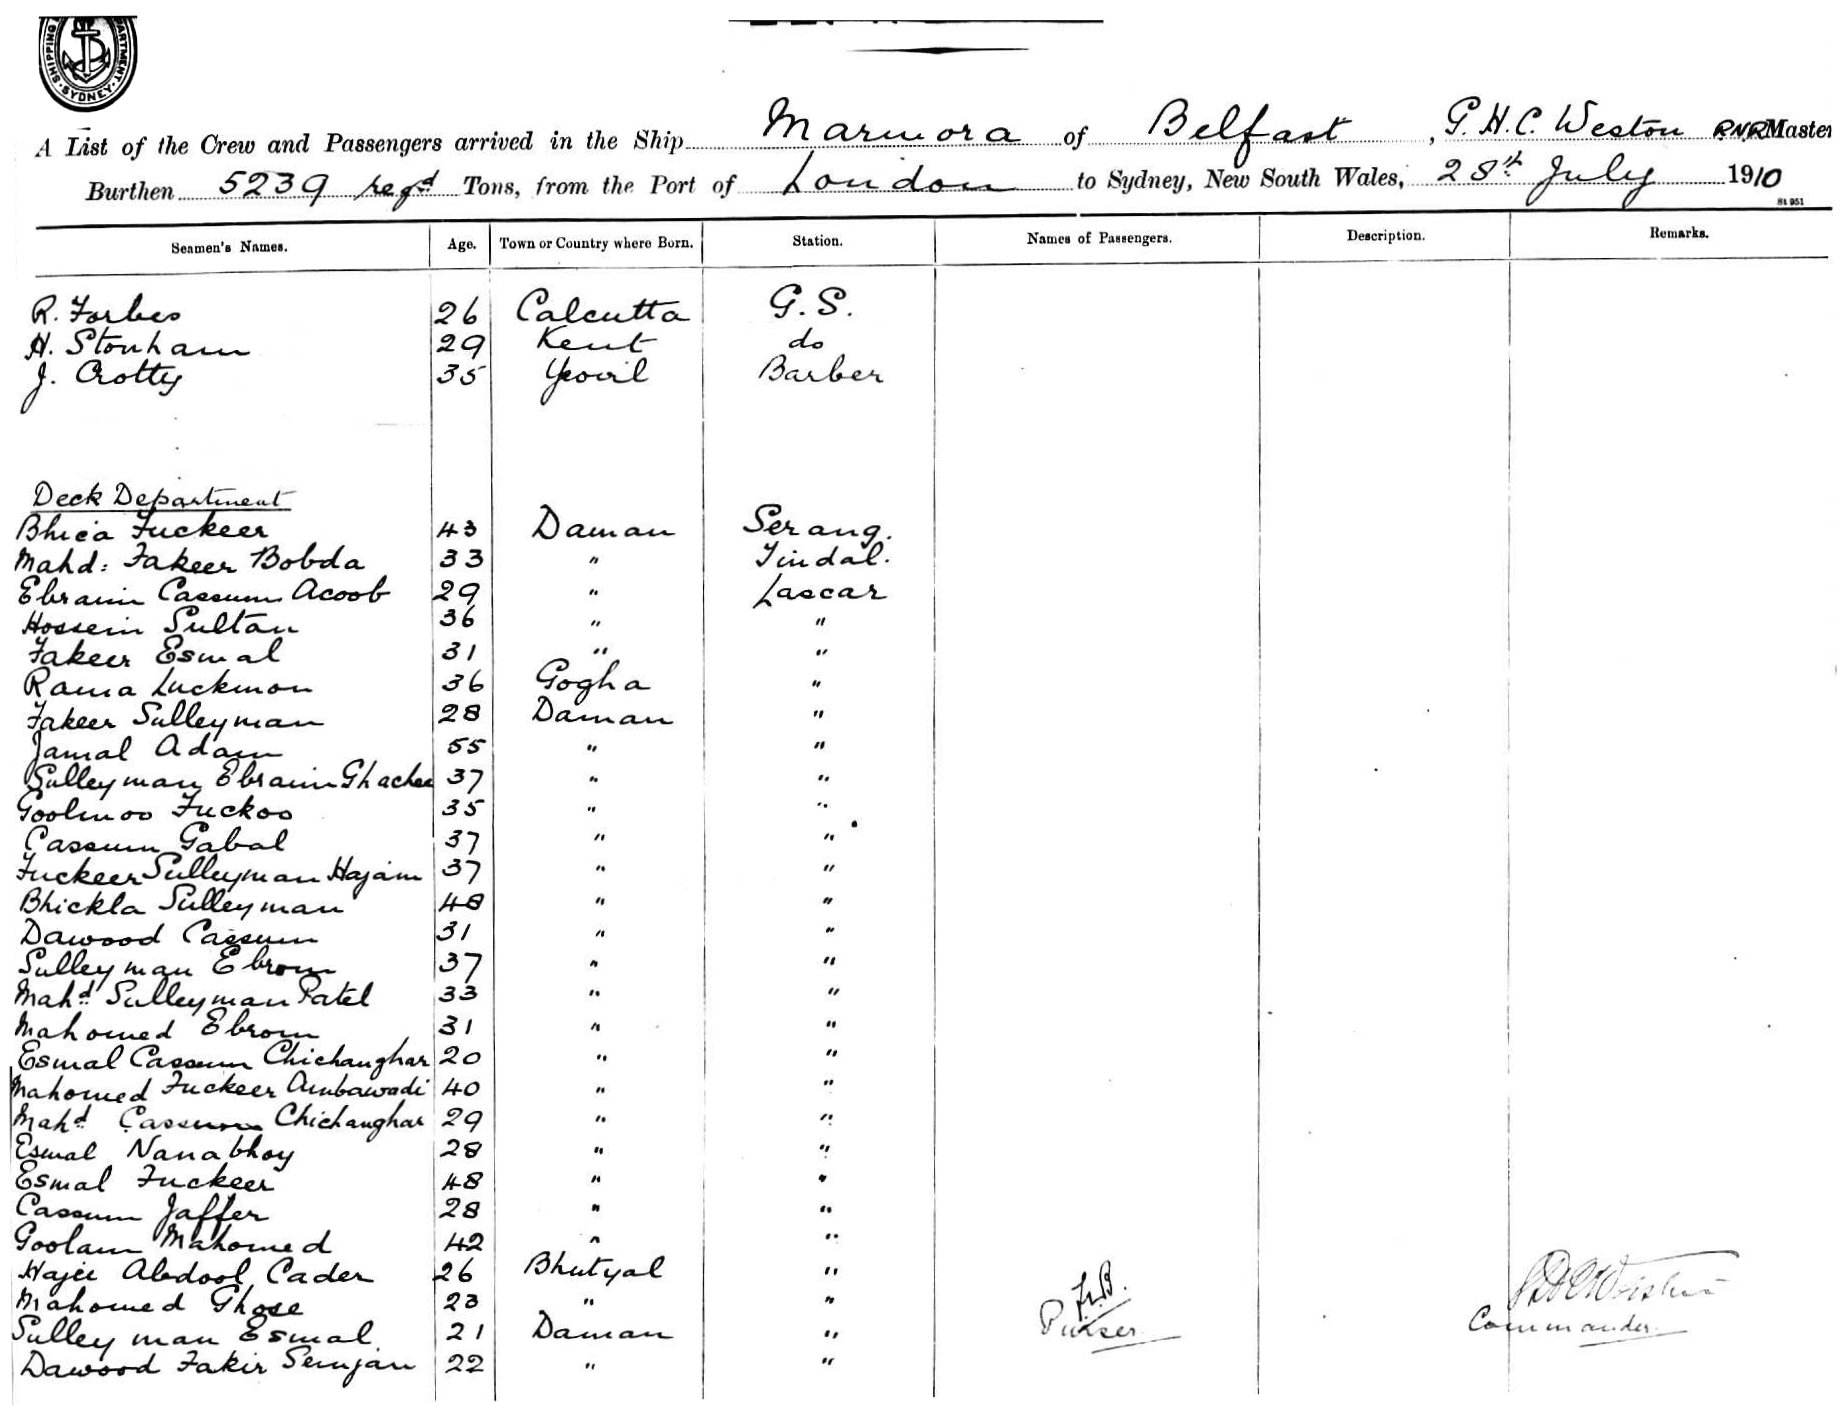 SHIPPING DEPARTMENT SYDNEY
A List of the Crew and Passengers arrived in the Ship Marmora of Belfast, G. H. C. Weston RNR Master
Burthen 5239 regd Tons, from the Port of London to Sydney, New South Wales, 28th July 1910
St 951
Seamen's Names. Age. Town or Country where Born. Station. Names of Passengers. Description. Remarks.
R. Forbes 26 Calcutta G. S.
H. Stonham 29 Kent do
J. Crotty 35 Yeovil Barber
Deck Department
Bhica Fuckeer 43 Daman Serang.
Mahd: Fakeer Bobda 33 " Tindal.
Ebraim Cassum Acoob 29 " Lascar
Hossein Sultan 36 " "
Fakeer Esmal 31 " "
Rama Luckmon 36 Gogha "
Fakeer Sulleyman 28 Daman "
Jamal Adam 55 " "
Sulleyman Ebraim Ghachee 37 " "
Goolmoo Fuckoo 35 " "
Cassum Gabal 37 " "
Fuckeer Sulleyman Hajam 37 " "
Bhickla Sulleyman 48 " "
Dawood Cassum 31 " "
Sulleyman Ebrom 37 " "
Mahd Sulleyman Patel 33 " "
Mahomed Ebrom 31 " "
Esmal Cassum Chichanghar 20 " "
Mahomed Fuckeer Ambawadi 40 " "
Mahd Cassum Chichanghar 29 " "
Esmal Nanabhoy 28 " "
Esmal Fuckeer 48 " "
Cassum Jaffer 28 " "
Goolam Mahomed 42 " "
Hajee Abdool Cader 26 Bhutyal "
Mahomed Ghose 23 " "
Sulleyman Esmal 21 Daman " Purser. Commander.
Dawood Fakir Semjan 22 " "